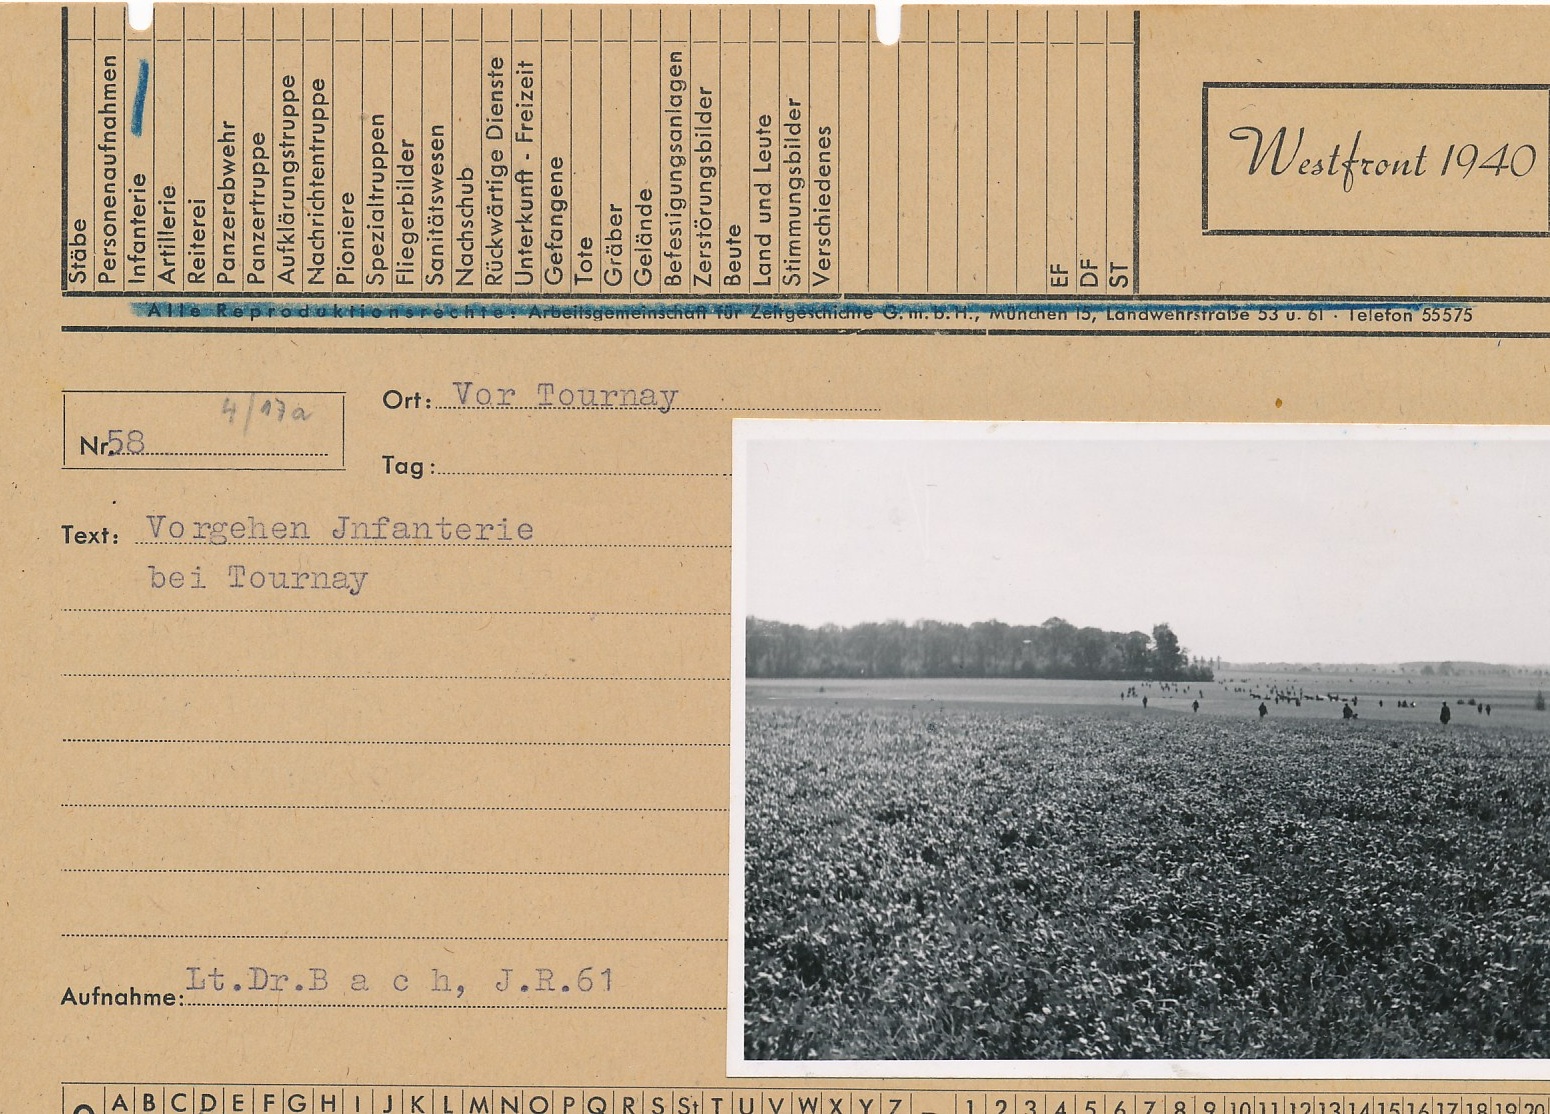 Stäbe
Personenaufnahmen
Infanterie
Artillerie
Reiterei
Panzerabwehr
Panzertruppe
Aufklärungstruppe
Nachrichtentruppe
Pioniere
Spezialtruppen
Fliegerbilder
Sanitätswesen
Nachschub
Rückwärtige Dienste
Unterkunft - Freizeit
Gefangene
Tote
Gräber
Gelände
Befestigungsanlagen
Zerstörungsbilder
Beute
Land und Leute
Stimmungsbilder
Verschiedenes
EF
DF
ST
Westfront 1940
Alle Reproduktionsrechte: Arbeitsgemeinschaft für Zeitgeschichte G. m. b. H., München 15, Landwehrstraße 53 u. 61 · Telefon 55575
4/17a
Nr. 58
Ort: Vor Tournay
Tag:
Text: Vorgehen Jnfanterie
bei Tournay
Aufnahme: Lt.Dr.B a c h, J.R.61
A B C D E F G H I J K L M N O P Q R S St T U V W X Y Z – 1 2 3 4 5 6 7 8 9 10 11 12 13 14 15 16 17 18 19 20